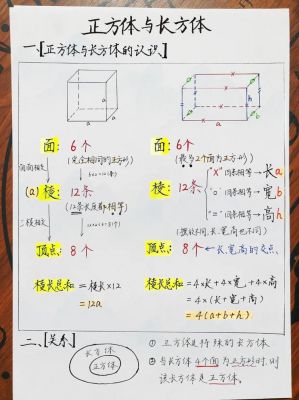 正方体与长方体
一、【正方体与长方体的认识】
a
a
a
h
b
a
面: 6个
(完全相同的正方形)
面: 6个
(最多2个面为正方形)
面面相交
(a) 棱: 12条
(12条长度都相等)
棱: 12条
"X" 4条相等→长a
4条相等→宽b
"=" 4条相等→高h
三棱相交
顶点: 8个
顶点: 8个 ←长、宽、高的交点
棱长总和 = 棱长×12
= 12a
棱长总和 = 4×长+4×宽+4×高
= 4×(长+宽+高)
= 4(a+b+h)
二、【关系】
长方体
正方体
① 正方体是特殊的长方体
② 当长方体4个面为正方形时,则
该长方体是正方体.